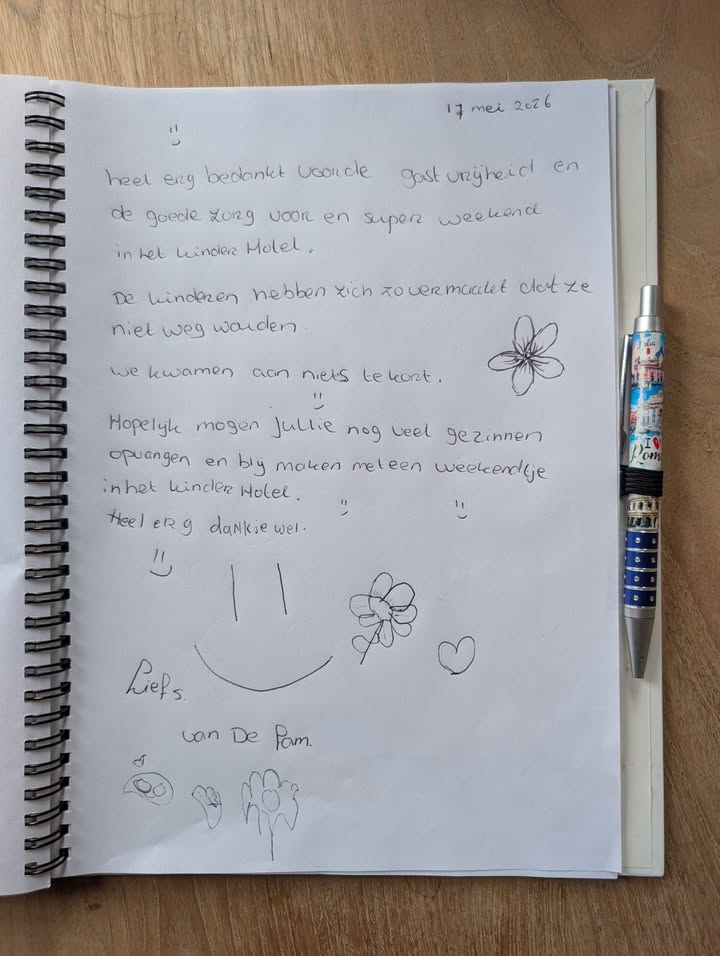 17 mei 2026
heel erg bedankt voor de gastvrijheid en
de goede zorg voor en super weekend
in het kinder Hotel.
De kinderen hebben zich zo vermaakt dat ze
niet weg wouden.
we kwamen aan niets te kort.
Hopelijk mogen jullie nog veel gezinnen
opvangen en blij maken met een weekendtje
in het kinder Hotel.
Heel erg dankje wel.
Liefs.
van De Fam.
Italia
I ♥
Roma